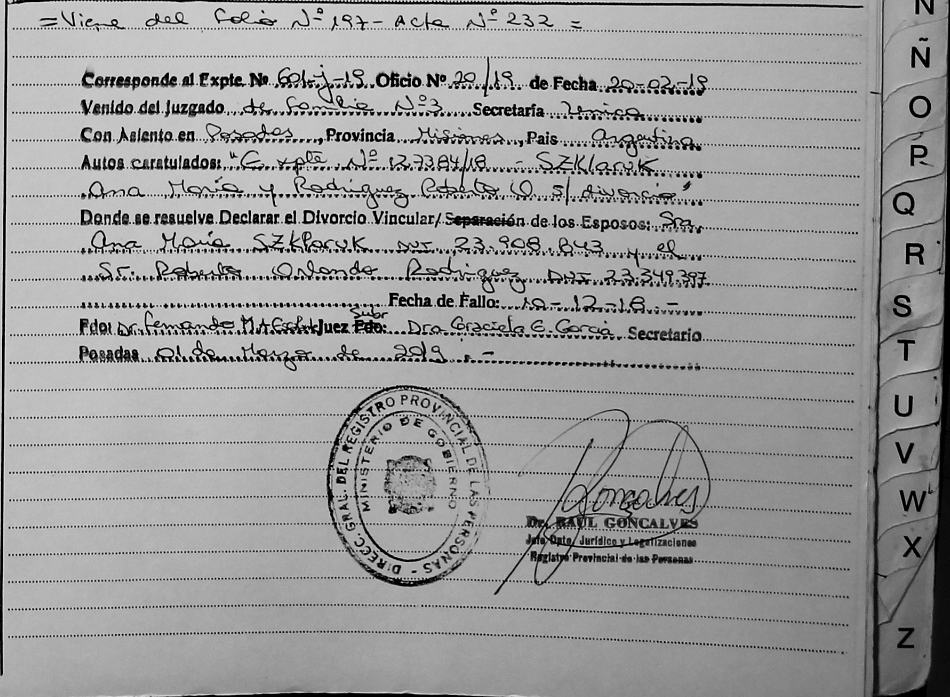 = Viene del folio Nº 197 - Acta Nº 232 =
Corresponde al Expte. Nº 601-J-19. Oficio Nº 20/19 de Fecha 20-02-19
Venido del Juzgado de Familia Nº3 Secretaría Unica
Con Asiento en Posadas, Provincia Misiones, Pais Argentina
Autos caratulados: "Expte Nº 127384/18 - SZKlaruK
Ana María y Rodriguez Roberto O. S/ divorcio"
Donde se resuelve Declarar el Divorcio Vincular/Separación de los Esposos: Sra.
Ana María SZKlaruK DNI 23.908.843 y el
Sr. Roberto Orlando Rodriguez DNI 23.349.397
Fecha de Fallo: 10-12-18.-
Subr
Fdo: Dr. Fernando M.A. Juez Fdo: Dra. Graciela E. Garcia Secretario
Posadas 01 de Marzo de 2019.-
DIREC. GRAL. DEL REGISTRO PROVINCIAL DE LAS PERSONAS -
MINISTERIO DE GOBIERNO
Goncalves
Dr. RAUL GONCALVES
Jefe Dpto. Jurídico y Legalizaciones
Registro Provincial de las Personas
N
Ñ
O
P
Q
R
S
T
U
V
W
X
Z